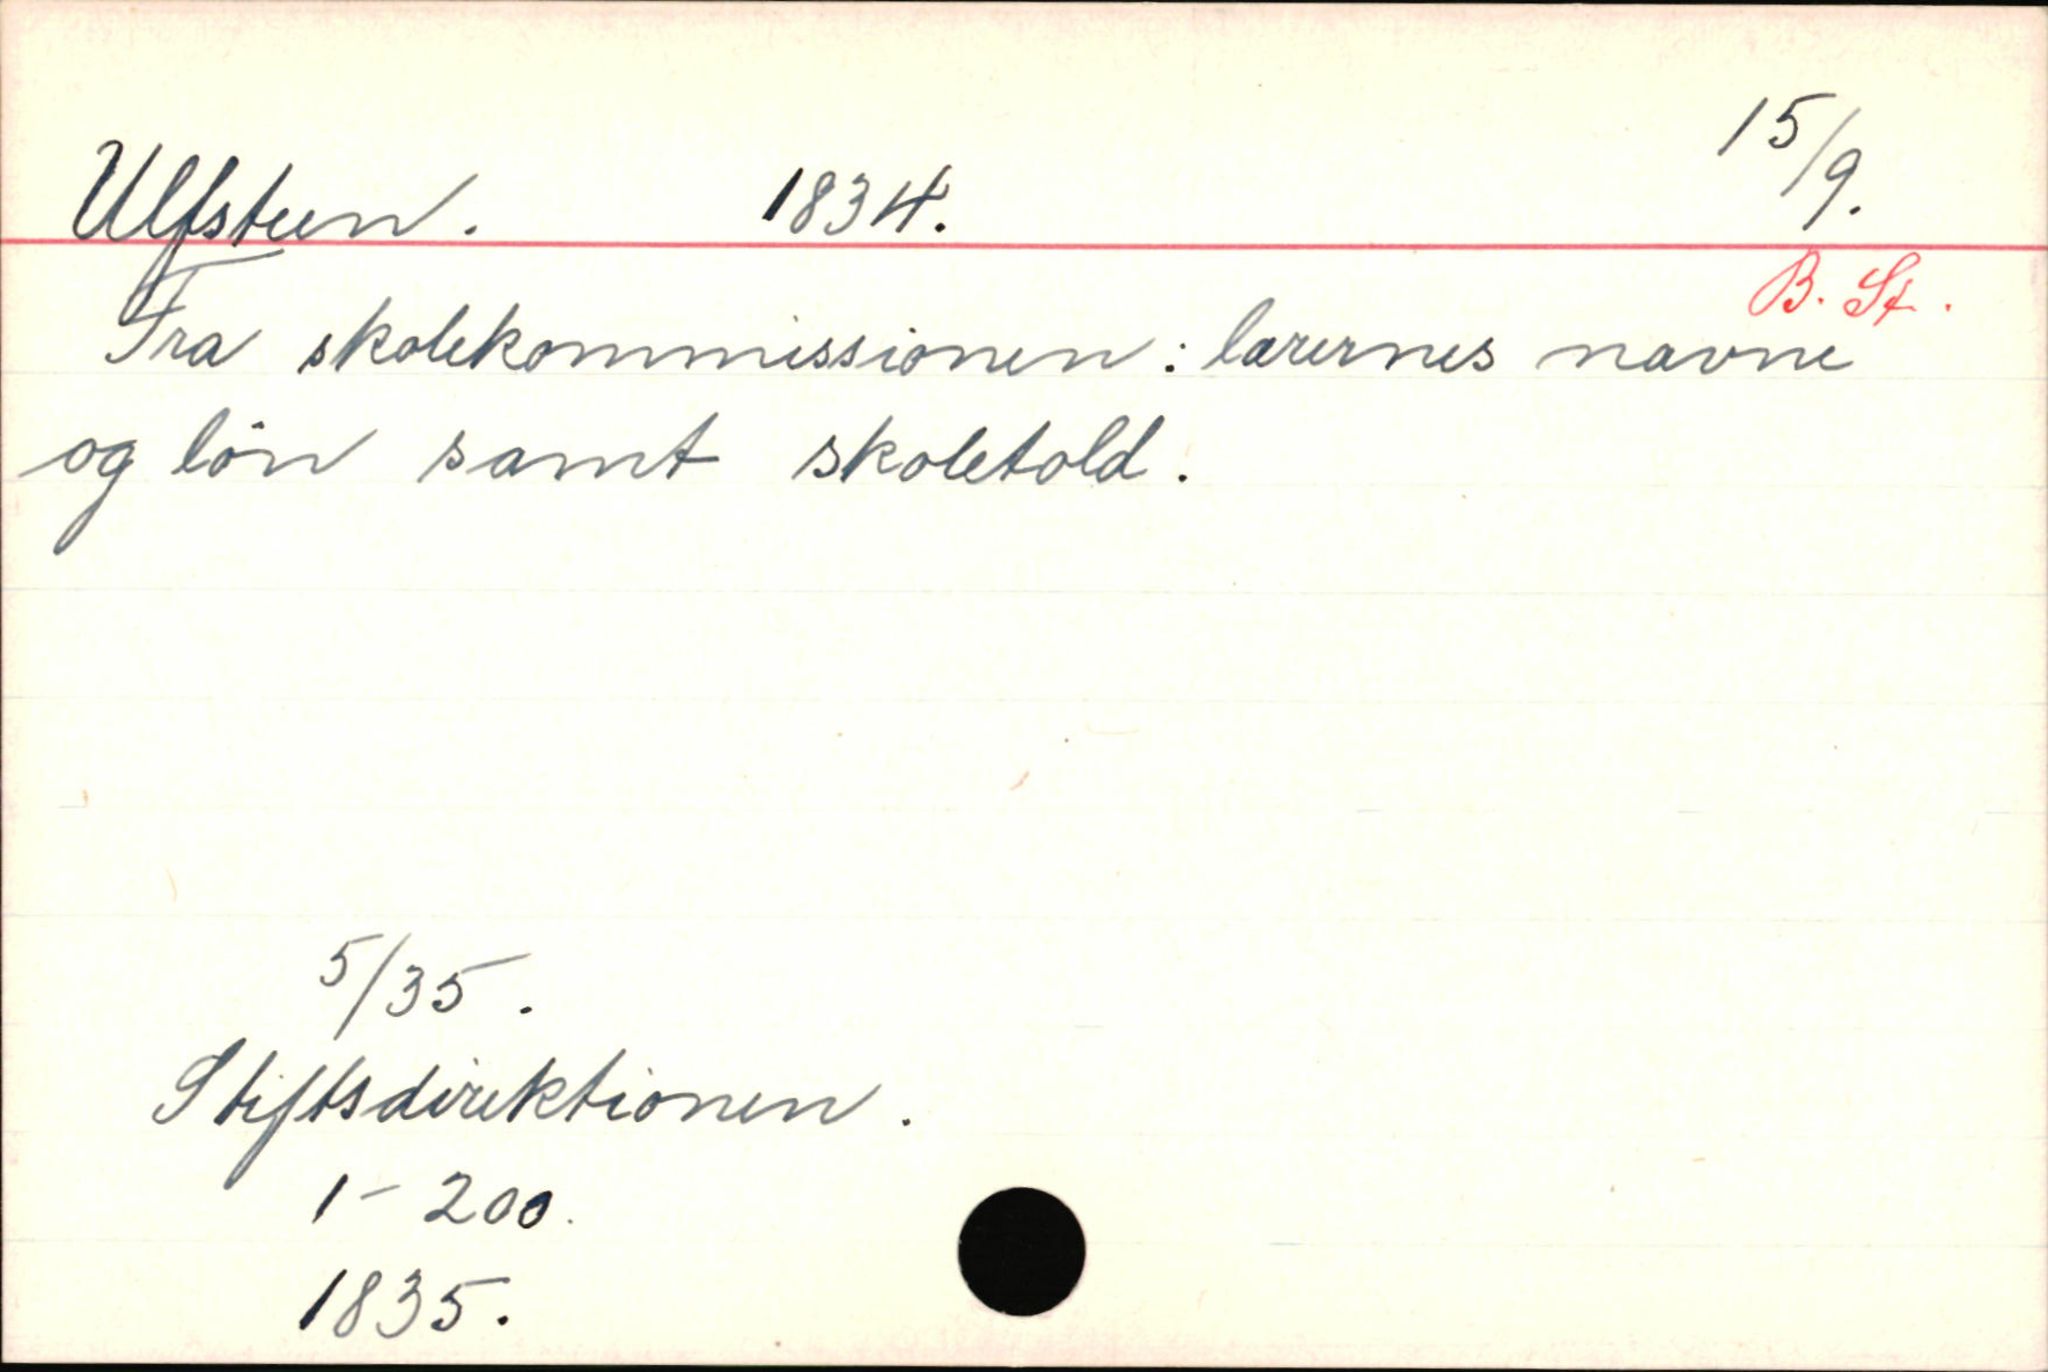 Ulfsteen. 1834. 15/9.
B. St.
Fra skolekommissionen: lærernes navne
og lön samt skoletold.
5/35.
Stiftsdirektionen.
1-200.
1835.